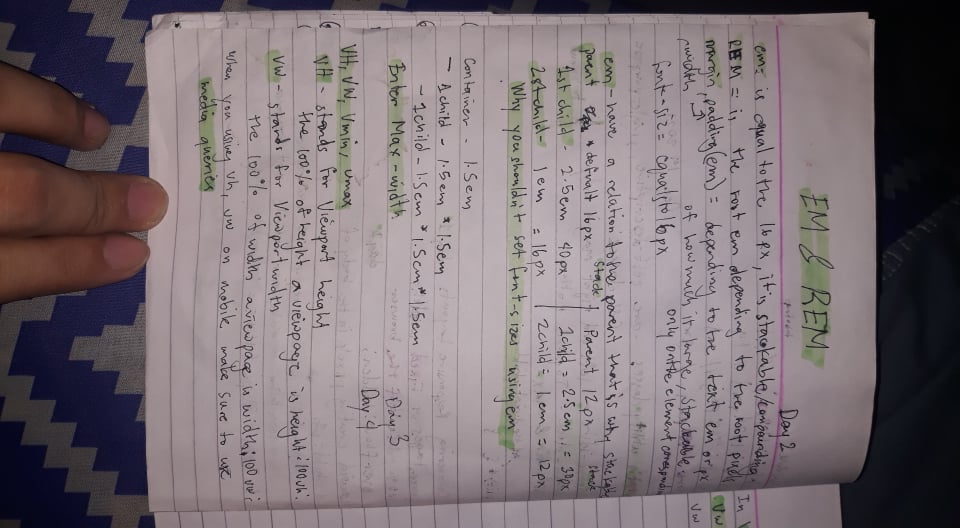 EM & REM
Day 2
em: is equal to the 16px, it is stackable/compounding.
REM = is the root em depending to the root pixels
margin, padding(em) = depending to the text em or px
width of how much it large, stackable
font-siz = equals to 16px only on the element correspondin
em - have a relation to the parent that is why stackable
parent * default 16px stack Parent 12px stack
1st child - 2.5em 40px 1child = 2.5em = 30px
2st child - 1em = 16px 2child = 1em = 12px
Why you shouldn't set font-sizes using em
Container - 1.5em
- 1child - 1.5em * 1.5em
- 1child - 1.5em * 1.5em * 1.5em
Enter Max-width Day 3
Day 4
VH, VW, Vmin, vmax
VH - stands for Viewport height
the 100% of height a viewpage is height: 100vh;
VW - stands for Viewport width
the 100% of width a viewpage is width: 100vw;
when you using vh, vw on mobile make sure to use
media queries
In V
Vw
Vw